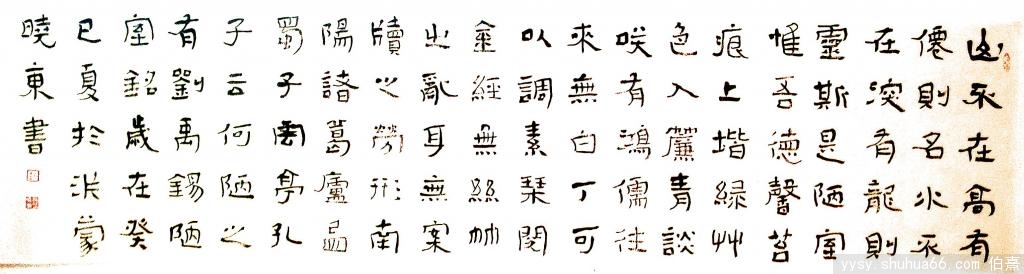 山不在高有
僊則名水不
在深有龍則
靈斯是陋室
惟吾德馨苔
痕上堦綠艸
色入簾青談
咲有鴻儒往
來無白丁可
以調素琹閱
金經無絲竹
之亂耳無案
牘之勞形南
陽諸葛廬西
蜀子雲亭孔
子云何陋之
有劉禹錫陋
室銘歲在癸
巳夏於洪蒙
曉東書
yysy.shuhua66.com 伯熹